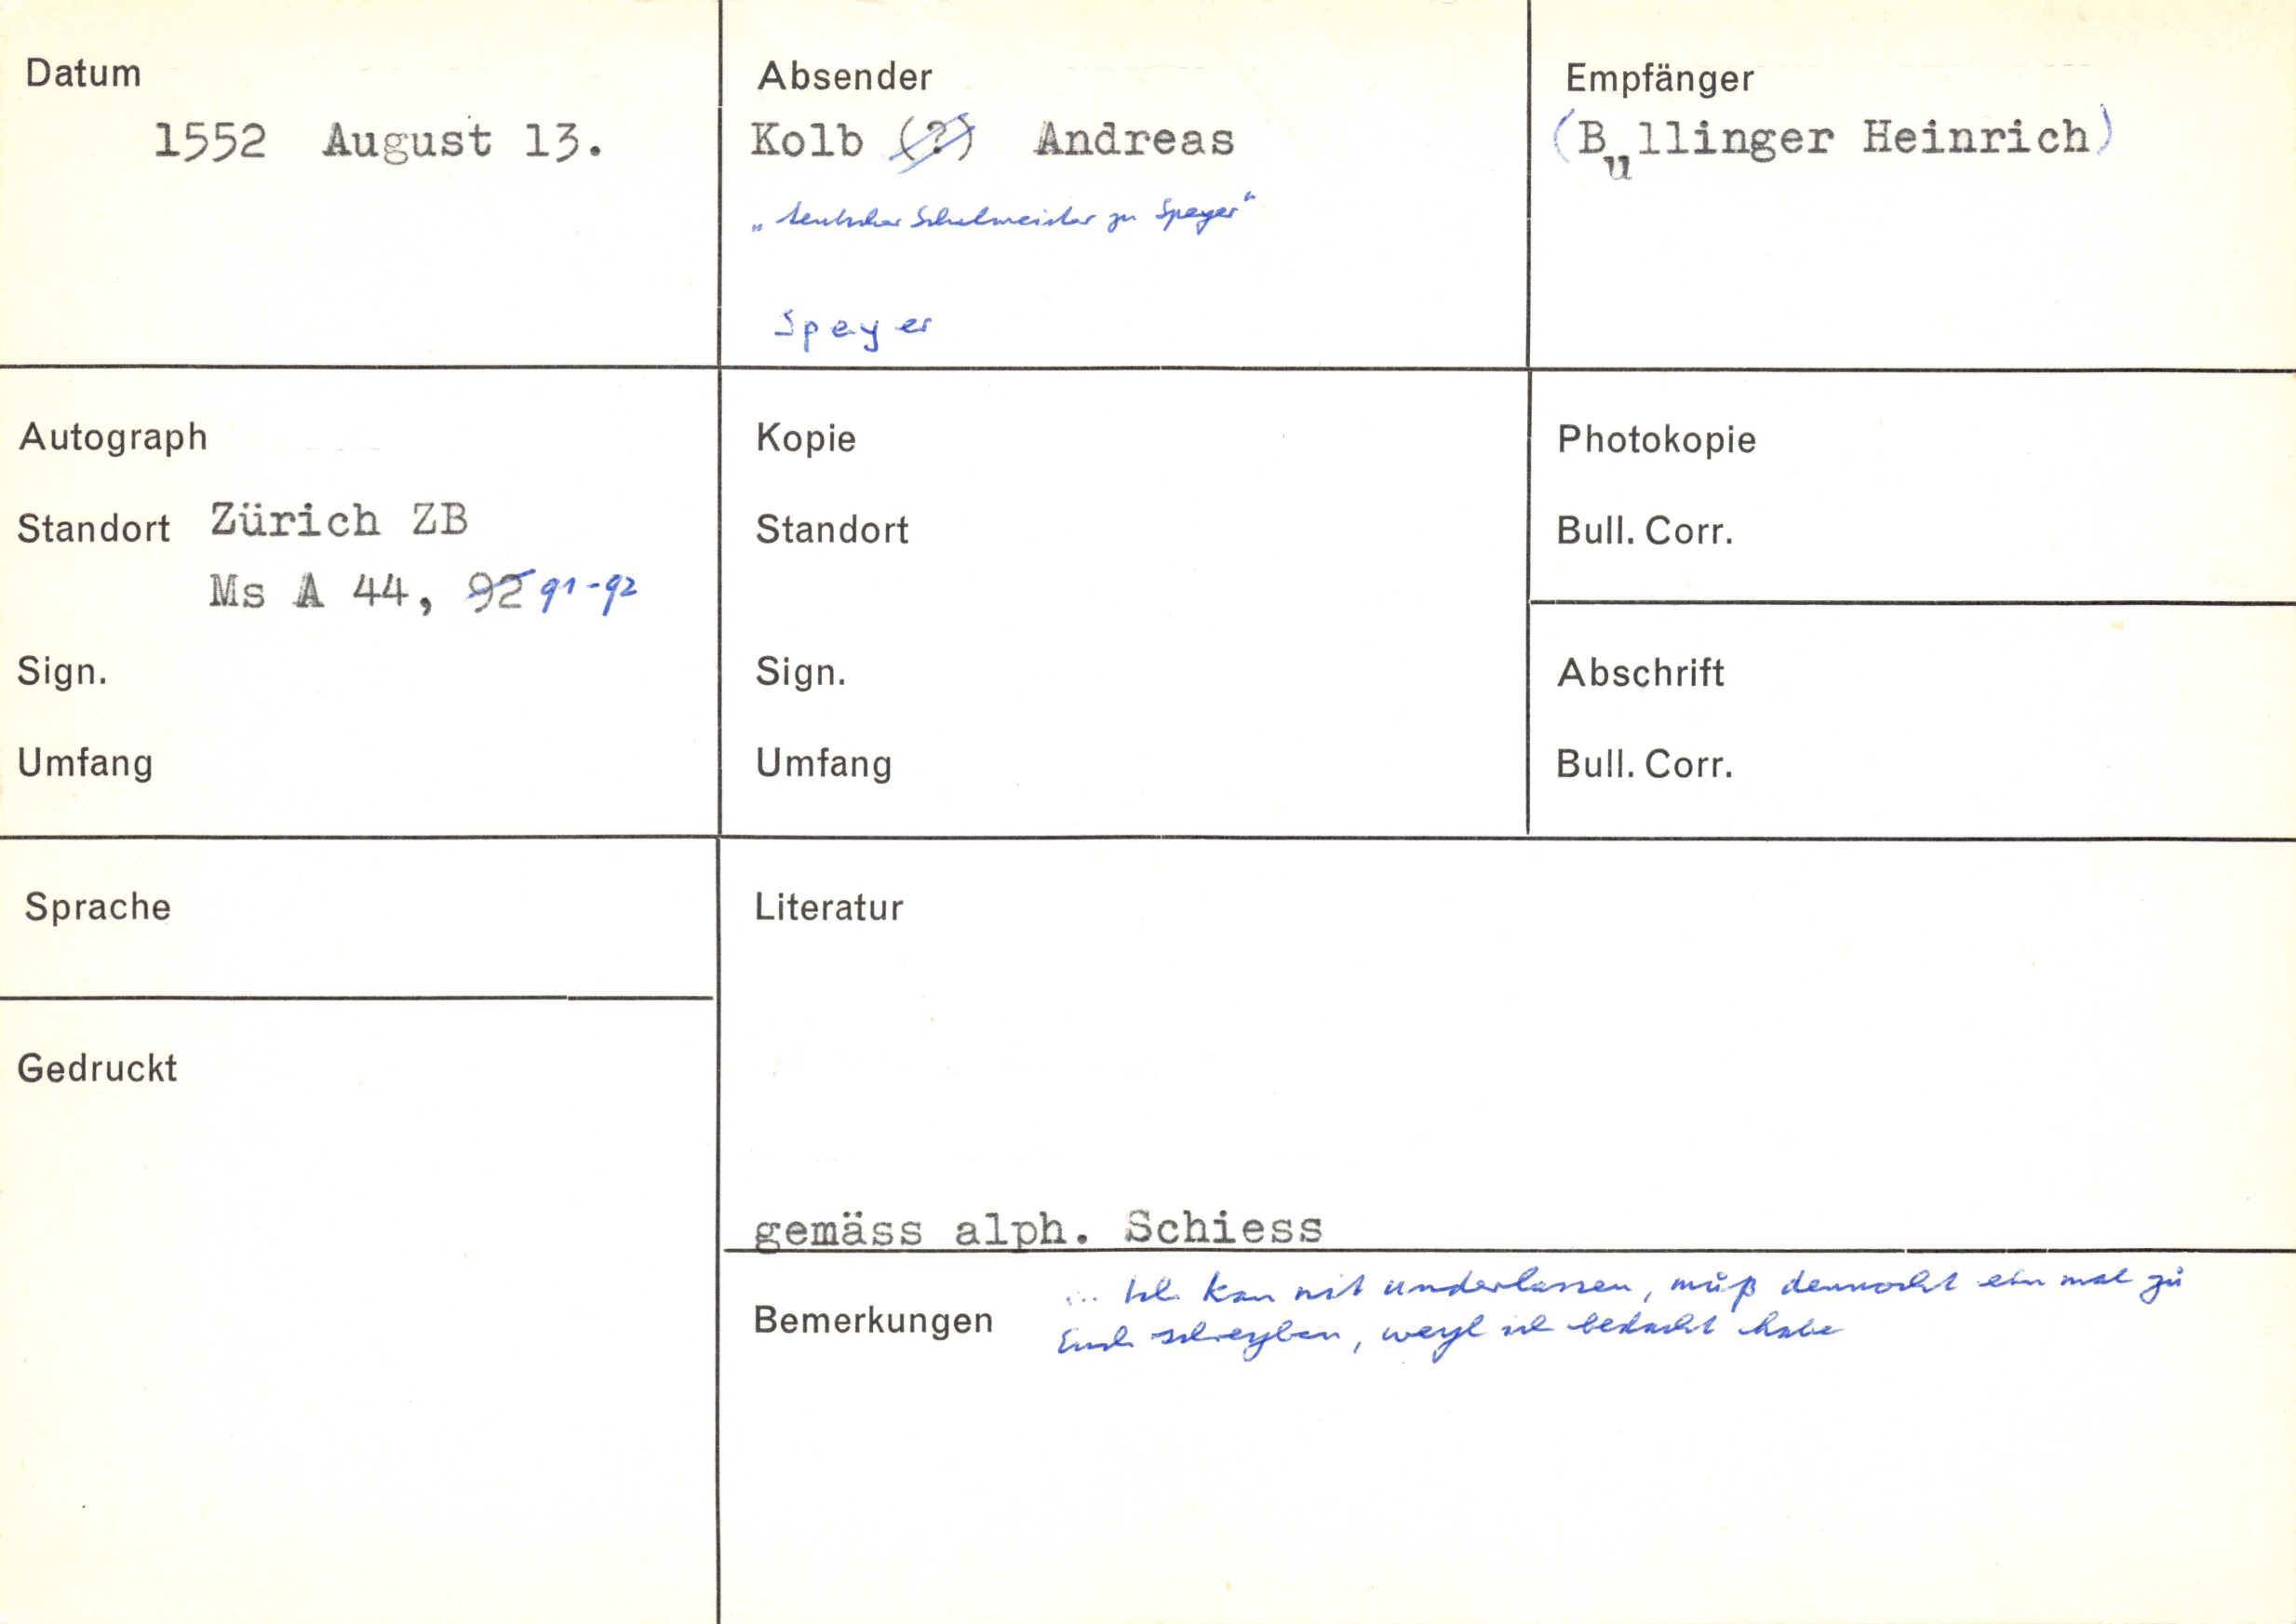 Datum
1552 August 13.
Absender
Kolb (?) Andreas
„teutscher Schulmeister zu Speyer"
Speyer
Empfänger
(Bullinger Heinrich)
Autograph
Standort Zürich ZB
Ms A 44, 92 91-92
Sign.
Umfang
Kopie
Standort
Sign.
Umfang
Photokopie
Bull. Corr.
Abschrift
Bull. Corr.
Sprache
Gedruckt
Literatur
gemäss alph. Schiess
Bemerkungen
... Ich kan nit underlassen, můß dennocht ein mal zů
Euch schreyben, weyl ich bedacht habe